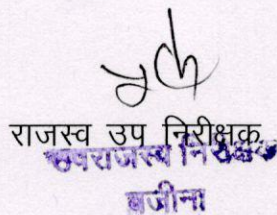 राजस्व उप निरीक्षक
उपराजस्व निरीक्षक